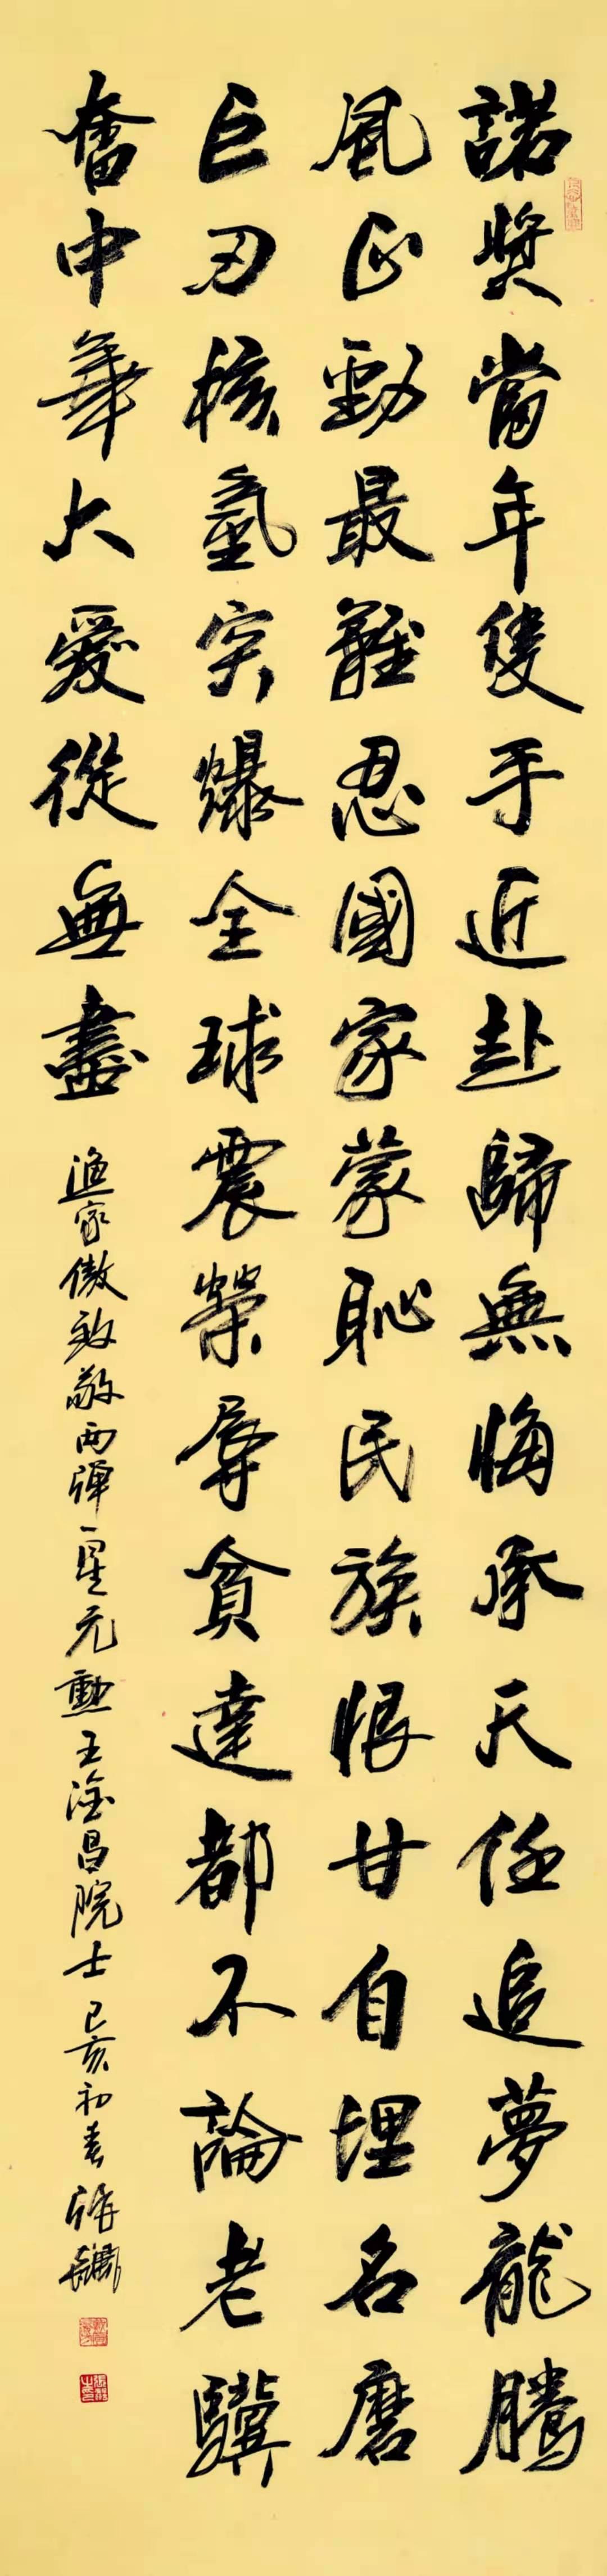 諾獎當年隻手近赴歸無悔承天任追夢龍騰
風正勁最難忍國家蒙恥民族恨甘自埋名磨
巨刃核氫突爆全球震榮辱貧達都不論老驥
奮中華大愛從無盡
漁家傲致敬兩彈一星元勳王淦昌院士己亥初春